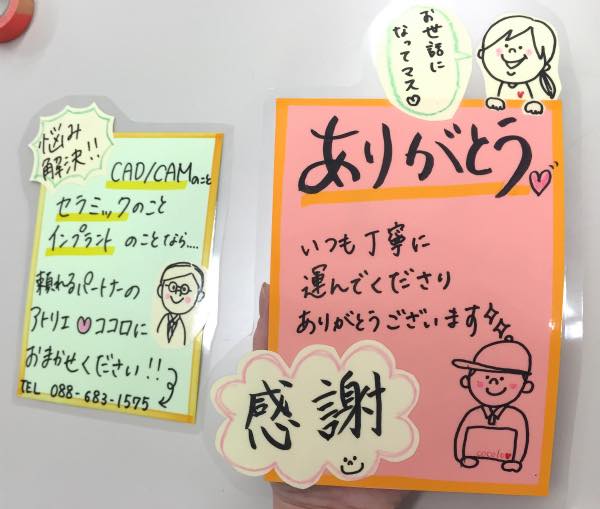 悩み
解決!!
CAD/CAMのこと
セラミックのこと
インプラントのことなら....
頼れるパートナーの
アトリエ♡ココロに
おまかせください!!
TEL 088-683-1575
お世話に
なってマス♡
ありがとう♡
いつも丁寧に
運んでくださり
ありがとうございます
感謝
cocolo♥